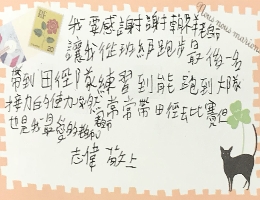 我要感謝謝朝祥老師
讓我從班級跑步最後一名
帶到田徑隊練習到能跑到大隊
接力白的健力常常帶田徑去比賽但
也是我最愛的老師
志偉 敬上
Nous nous marions